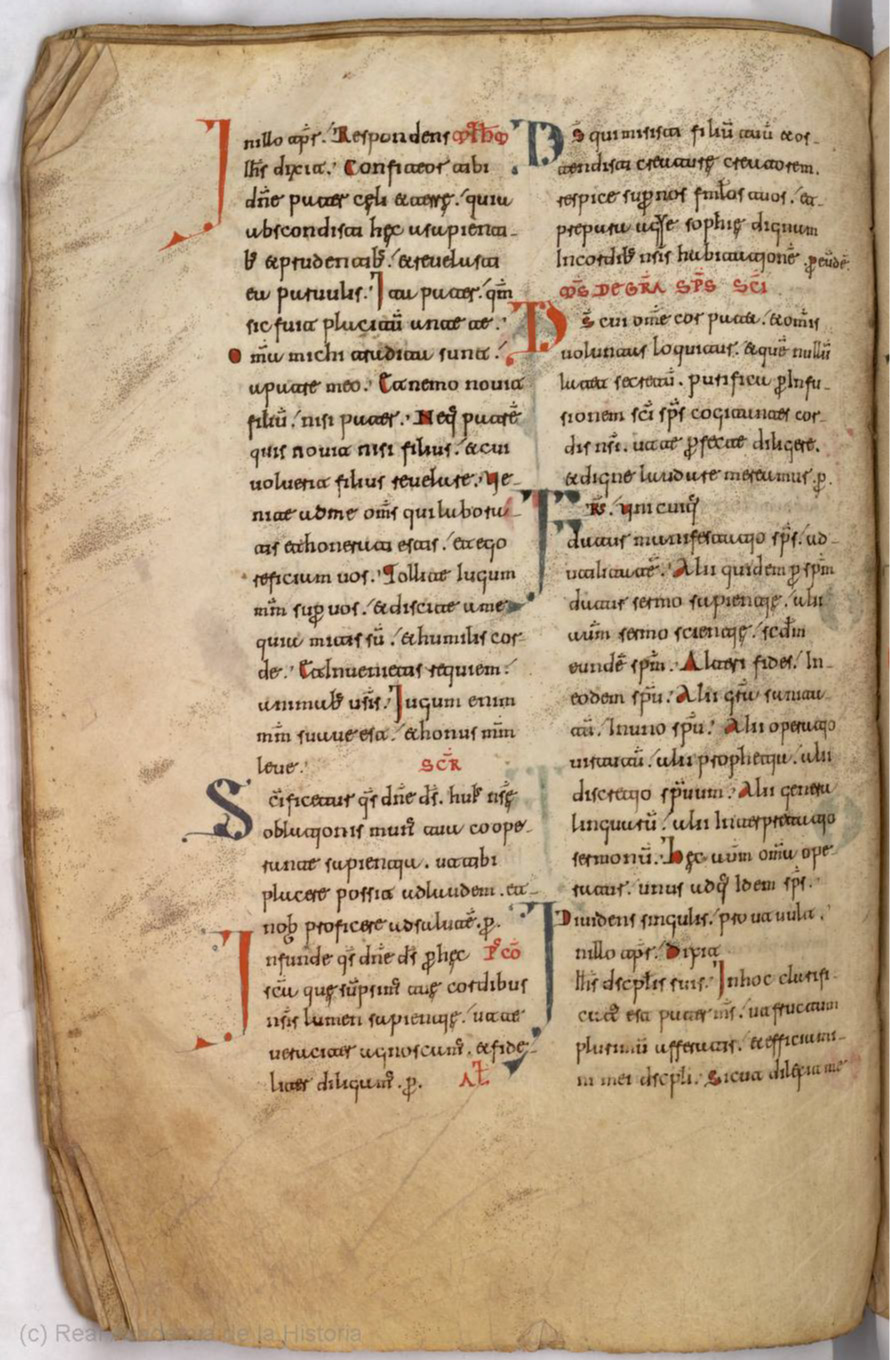 In illo tp̄r. Respondens
Ih̄s dixit. Confiteor tibi
dn̄e pater cęli et terrę. quia
abscondisti hęc a sapienti-
b; et prudentib;. et revelasti
ea parvulis. Ita pater. qm̄
sic fuit placitū ante te.
Om̄ia michi tradita sunt.
a patre meo. Et nemo novit
filiū. nisi pater. Neq; patrē
quis novit nisi filius. et cui
voluerit filius revelare. Ve-
nite ad me om̄s qui labora-
tis et honerati estis. et ego
reficiam vos. Tollite iugum
mm̄ sup̄ vos. et discite a me
quia mitis sū. et humilis cor-
de. Et invenietis requiem.
animab; vr̄is. Iugum enim
mm̄ suave est. et honus mm̄
leve. SCR̄
Sc̄ificetur qs̄ dn̄e ds̄. huI; nr̄ę
oblationis mun; tua coope-
rante sapientia. ut tibi
placere possit ad laudem. et
nob; proficere ad salutē. p̄.
Infunde qs̄ dn̄e ds̄ p̄ hęc P̄CŌ
sc̄a quę sūpsim; tuę cordibus
nr̄is lumen sapientię. ut te
veraciter agnoscam;. et fide-
liter diligam;. p̄. AL̄
Ds̄ qui misisti filiū tuū et os-
tendisti creaturę creatorem.
respice sup̄ nos fml̄os tuos. et
prepara aḡie sophię dignum
In cordib; nr̄is habitationē. p̄ eūdē
MS̄ DE GR̄A SP̄S SC̄I
Ds̄ cui om̄e cor patet. et om̄is
voluntas loquitur. et quē nullū
latet secretū. purifica p̄ Infu-
sionem sc̄i sp̄s cogitationes cor-
dis nr̄i. ut te p̄fecte diligere.
et digne laudare mereamur. p̄.
Fr̄s. Unicuiq;
datur manifestatio sp̄s. ad
utilitatē. Alii quidem p̄ sp̄m
datur sermo sapientię. alii
aūm sermo scientię. scd̄m
eundē sp̄m. Alteri fides. In
eodem sp̄u. Alii gr̄a sanita-
tū. In uno sp̄u. Alii operatio
virtutū. alii prophetia. alii
discretio sp̄uum. Alii genera
linguarū. alii Interpretatio
sermonū. Hęc aūm om̄ia ope-
ratur. unus adq; Idem sp̄s.
Dividens singulis. prout vult.
In illo tp̄r. Dixit
Ih̄s dscpl̄is suis. In hoc clarifi-
catus est pater ms̄. ut fructum
plurimū afferatis. et efficiami-
ni mei dscpl̄i. Sicut dilexit me